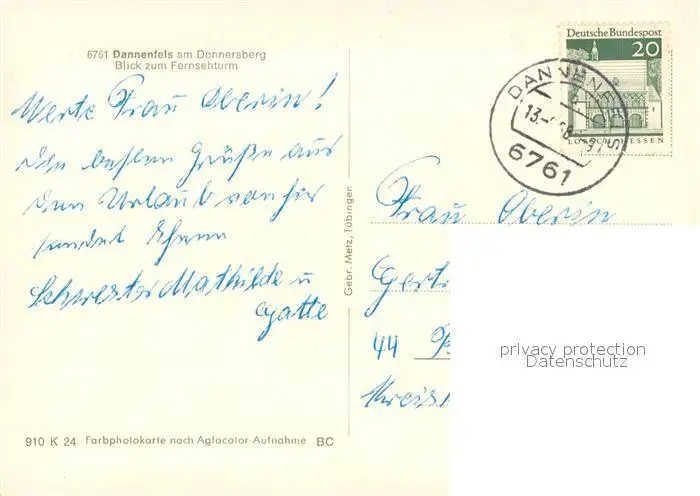 6761 Dannenfels am Donnersberg
Blick zum Fernsehturm
Werte Frau Oberin!
Die besten Grüße aus
dem Urlaub von hir
sendet Ihnen
Schwester Mathilde u
Gebr. Metz, Tübingen
Deutsche Bundespost
20
LORSCH/HESSEN
DANNENFELS
13.
6761
Frau Oberin
44
Kreis
privacy protection
Datenschutz
910 K 24 Farbphotokarte nach Agfacolor-Aufnahme BC